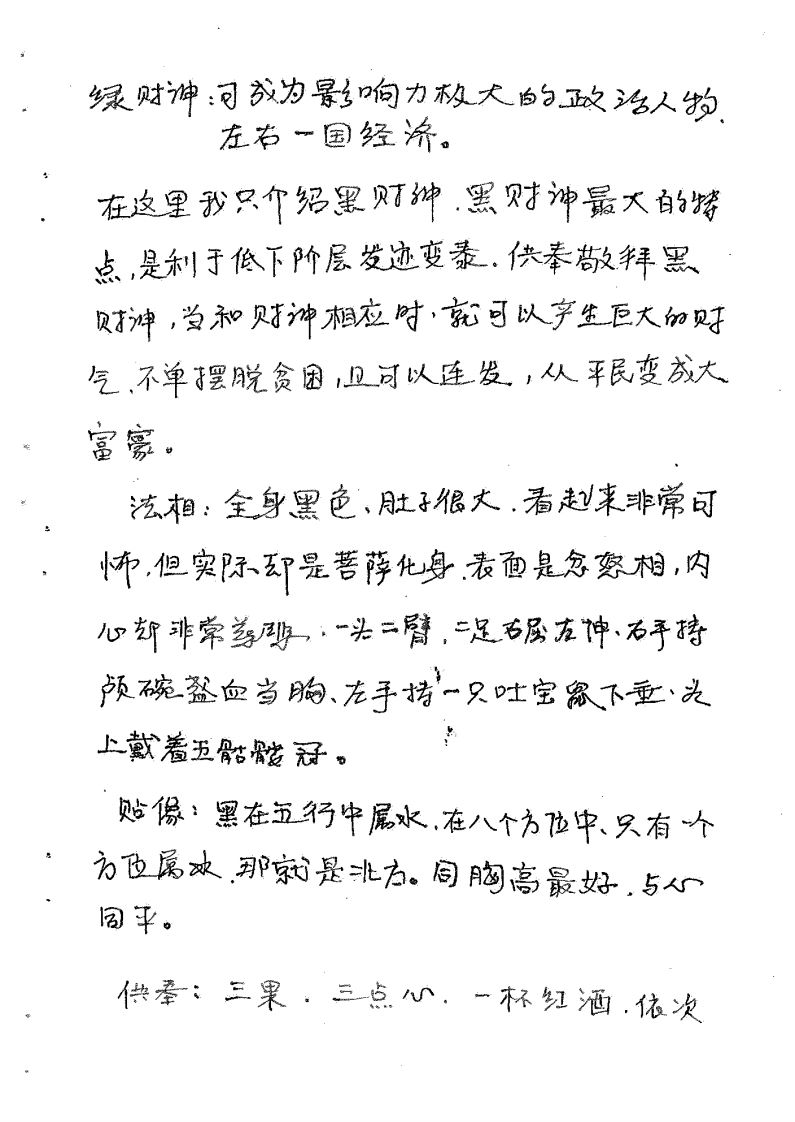 绿财神:可成为影响力极大的政治人物.
左右一国经济。
在这里我只介绍黑财神.黑财神最大的特
点,是利于低下阶层发迹变泰.供奉敬拜黑
财神,当和财神相应时,就可以产生巨大的财
气、不单摆脱贫困,且可以连发,从平民变成大
富豪。
法相:全身黑色、肚子很大.看起来非常可
怖.但实际却是菩萨化身.表面是忿怒相,内
心却非常慈.一头二臂.二足右屈左伸、右手持
颅碗盔血当胸、左手持一只吐宝鼠下垂.头
上戴着五骷髅冠。
贴像:黑在五行中属水.在八个方位中、只有一个
方位属水.那就是北方。同胸高最好.与心
同平。
供奉:三果.三点心.一杯红酒.依次